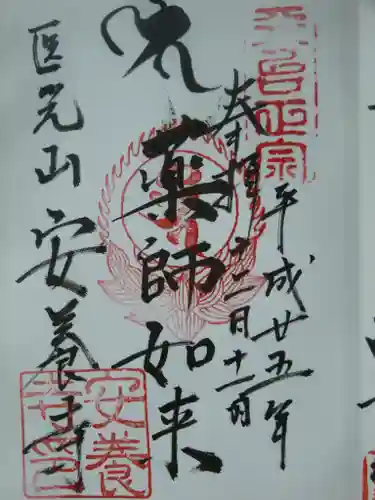 天台正宗
奉拝
平成廿五年
十二月十一日
薬師如来
医光山安養寺
安養
寺印